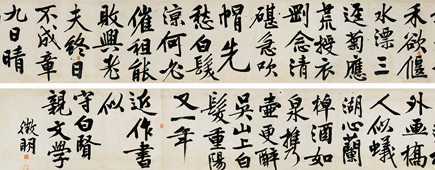 禾欲偃
水漂三
逕菊應
荒授衣
念清
碪急吹
帽先
愁白髮
涼何必
催租能
敗興老
夫終日
不成章
九日晴
外畫橋
人似蟻
湖心蘭
棹酒如
泉攜
壺更醉
吳山上白
髮重陽
又一年
近作書
似
守白賢
親文學
徵明